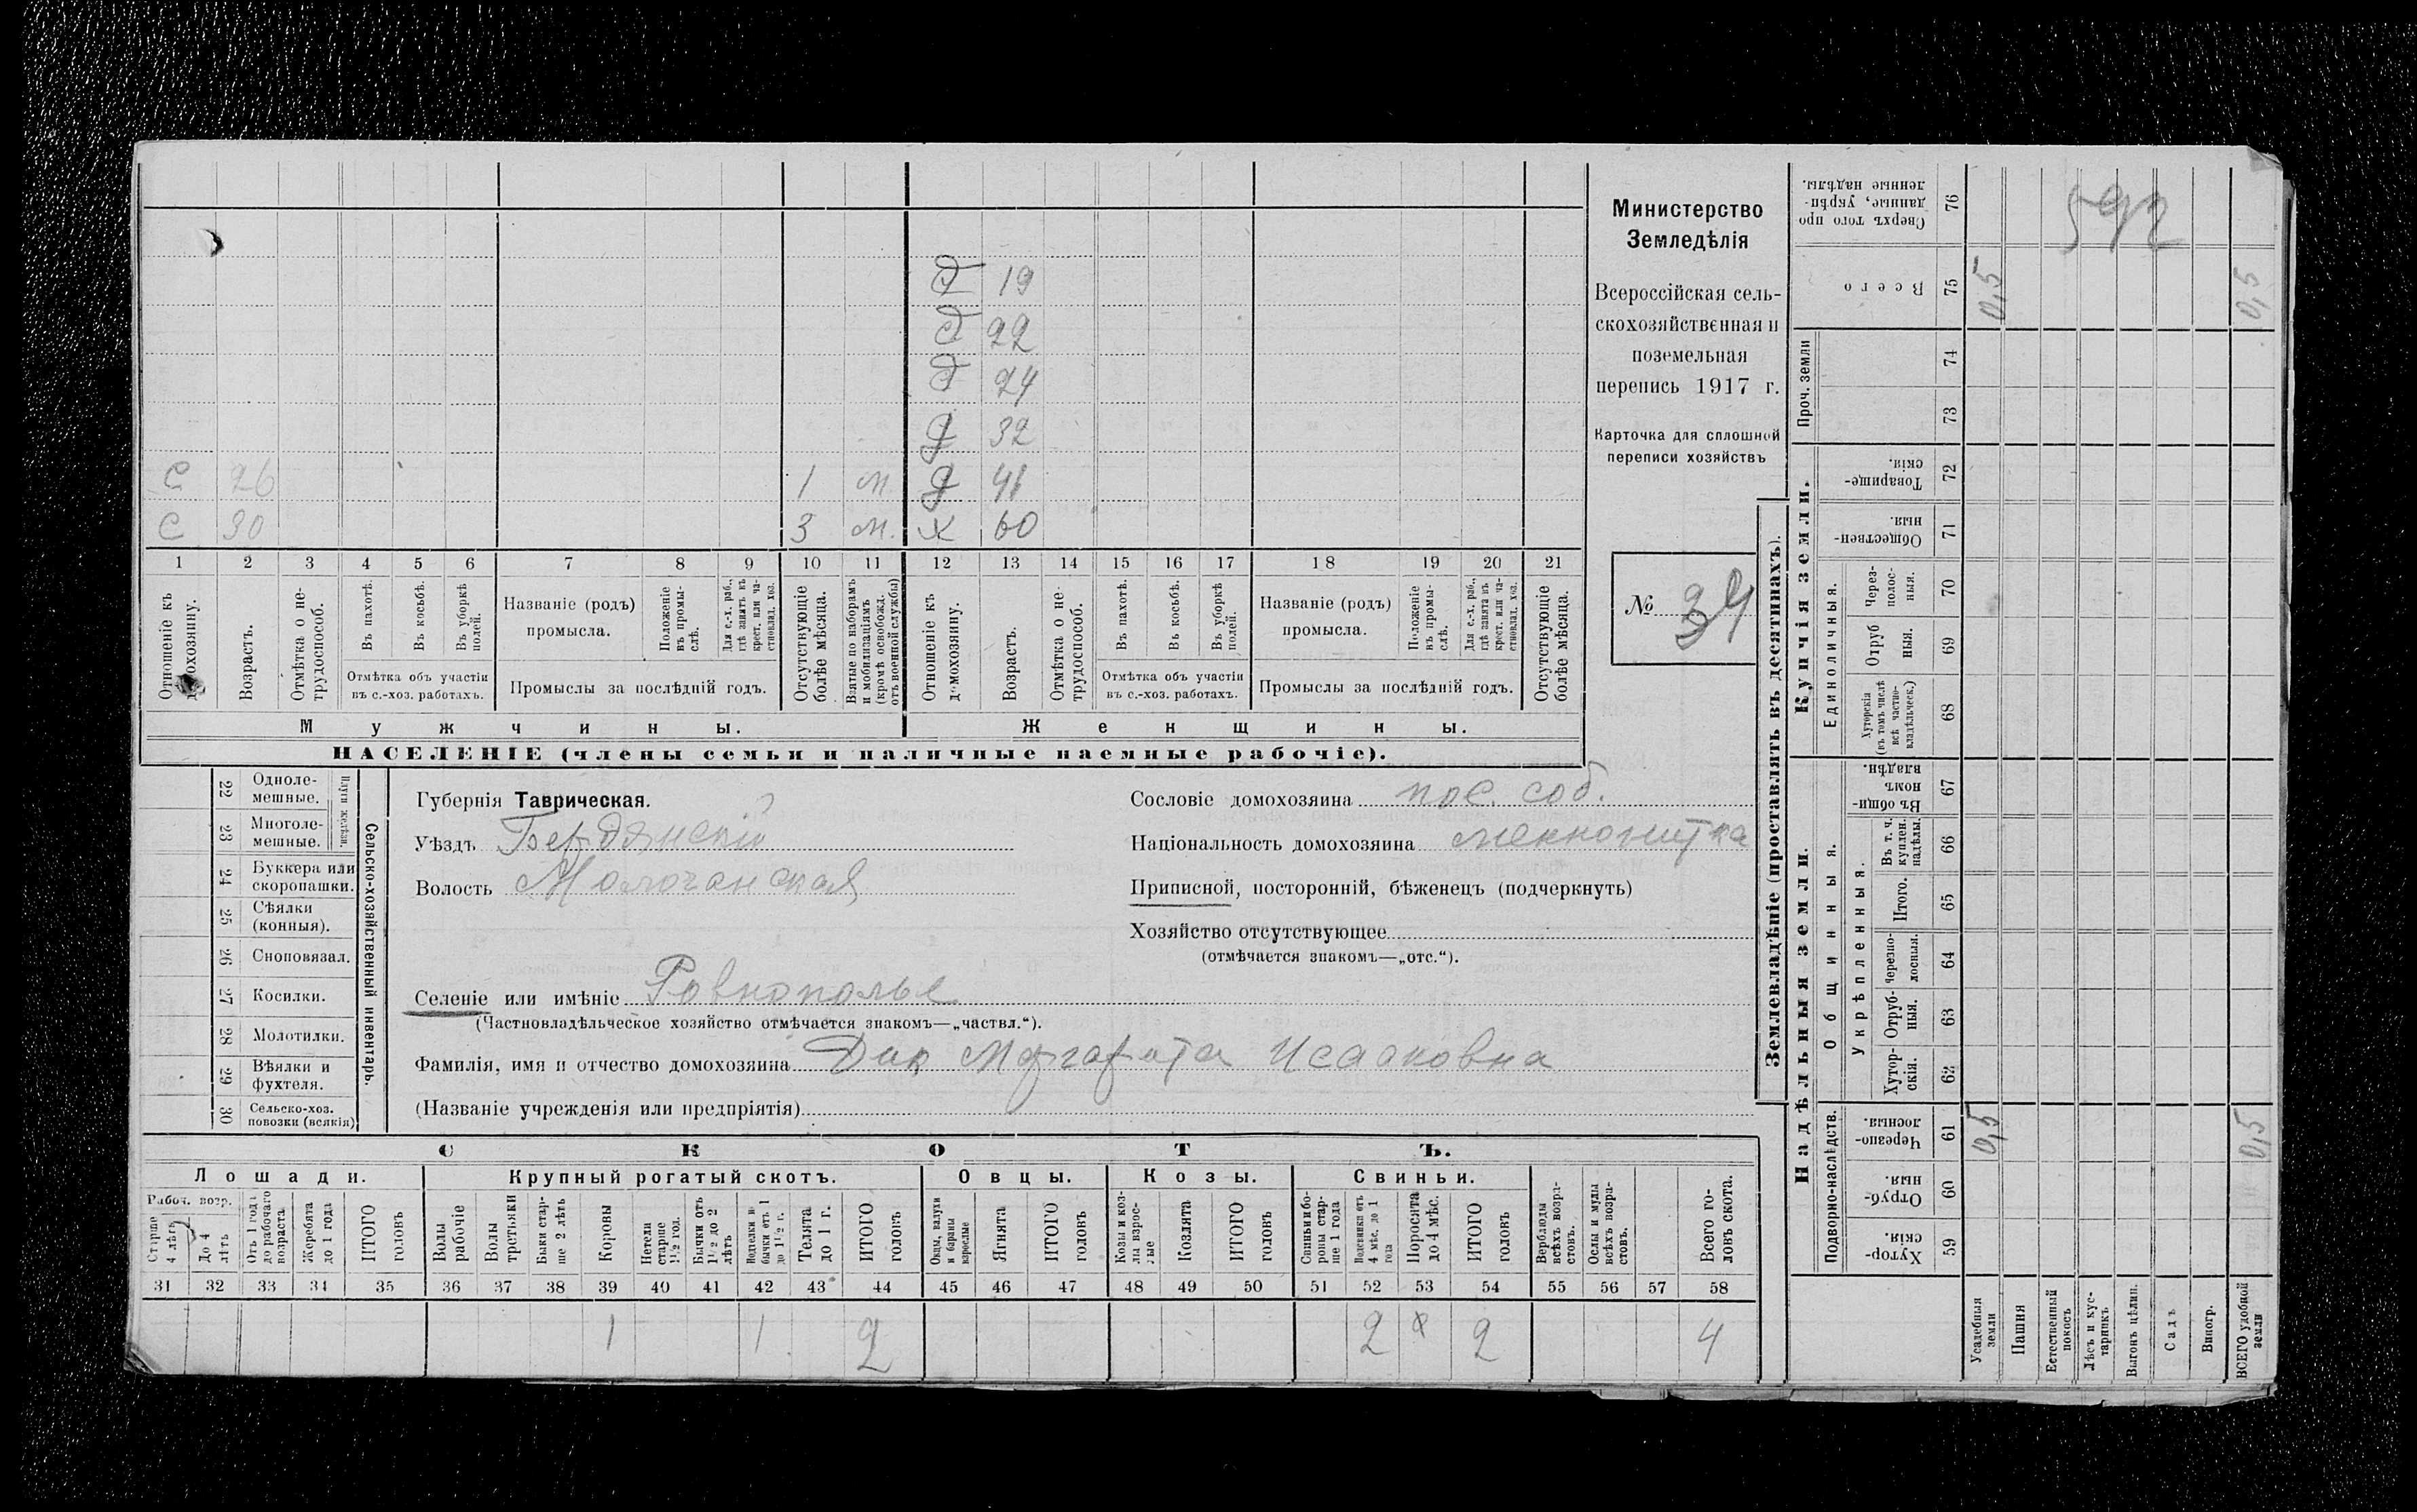 Министерство
Земледѣлія
Всероссійская сель-
скохозяйственная и
поземельная
перепись 1917 г.
Карточка для сплошной
переписи хозяйствъ
№ 34
592
Д 19
Д 22
Д 24
Д 32
С 26 1 м Д 41
С 30 3 м. Х 60
1 2 3 4 5 6 7 8 9 10 11 12 13 14 15 16 17 18 19 20 21
Отношеніе къ домохозяину.
Возрастъ.
Отмѣтка о не-
трудоспособ.
Въ пахотѣ.
Въ косьбѣ.
Въ уборкѣ
полей.
Отмѣтка объ участіи
въ с.-хоз. работахъ.
Названіе (родъ)
промысла.
Положеніе
въ промы-
слѣ.
Для с.-х. раб.,
гдѣ занятъ въ
крест. или ча-
стновлад. хоз.
Промыслы за послѣдній годъ.
Отсутствующіе
болѣе мѣсяца.
Взятые по наборамъ
и мобилизаціямъ
(кромѣ освобожд.
отъ военной службы)
Отношеніе къ
домохозяину.
Возрастъ.
Отмѣтка о не-
трудоспособ.
Въ пахотѣ.
Въ косьбѣ.
Въ уборкѣ
полей.
Отмѣтка объ участіи
въ с.-хоз. работахъ.
Названіе (родъ)
промысла.
Положеніе
въ промы-
слѣ.
Для с.-х. раб.,
гдѣ занята въ
крест. или ча-
стновлад. хоз.
Промыслы за послѣдній годъ.
Отсутствующіе
болѣе мѣсяца.
Мужчины.
Женщины.
НАСЕЛЕНІЕ (члены семьи и наличные наемные рабочіе).
22 Одноле-
мешные.
23 Многоле-
мешные.
Плуги желѣзн.
24 Буккера или
скоропашки.
25 Сѣялки
(конныя).
26 Сноповязал.
27 Косилки.
28 Молотилки.
29 Вѣялки и
фухтеля.
30 Сельско-хоз.
повозки (всякія)
Сельско-хозяйственный инвентарь.
Губернія Таврическая.
Уѣздъ Бердянскій
Волость Молочанская
Селеніе или имѣніе Ровнополье
(Частновладѣльческое хозяйство отмѣчается знакомъ—„частвл.“).
Фамилія, имя и отчество домохозяина Дик Маргарита Исааковна
(Названіе учрежденія или предпріятія)
Сословіе домохозяина пос. соб.
Національность домохозяина меннонитка
Приписной, посторонній, бѣженецъ (подчеркнуть)
Хозяйство отсутствующее
(отмѣчается знакомъ—„отс.“).
СКОТЪ.
Лошади.
Крупный рогатый скотъ.
Овцы.
Козы.
Свиньи.
Рабоч. возр.
Старше
4 лѣтъ
До 4
лѣтъ
Отъ 1 года
до рабочаго
возраста
Жеребята
до 1 года
ИТОГО
головъ
Волы
рабочіе
Волы
третьяки
Быки стар-
ше 2 лѣтъ
Коровы
Нетели
старше
1½ год.
Бычки отъ
1½ до 2
лѣтъ
Подтелки и
бычки отъ 1
до 1½ г.
Телята
до 1 г.
ИТОГО
головъ
Овцы, валухи
и бараны
взрослые
Ягнята
ИТОГО
головъ
Козы и коз-
лы взрос-
лые
Козлята
ИТОГО
головъ
Свиньи и бо-
ровы стар-
ше 1 года
Подсвинки отъ
4 мѣс. до 1
года
Поросята
до 4 мѣс.
ИТОГО
головъ
Верблюды
всѣхъ возра-
стовъ.
Ослы и мулы
всѣхъ возра-
стовъ.
Всего го-
ловъ скота.
31 32 33 34 35 36 37 38 39 40 41 42 43 44 45 46 47 48 49 50 51 52 53 54 55 56 57 58
1 1 2 2 2 4
Землевладѣніе (проставлять въ десятинахъ).
Надѣльныя земли.
Купчія земли.
Проч. земли
Подворно-наслѣдств.
Общинныя.
Укрѣпленныя.
Единоличныя.
Сверхъ того про
данные, укрѣп-
ленные надѣлы. 76
Всего 75 0,5 0,5
74
73
Товарище-
скія. 72
Обществен-
ныя. 71
Через-
полос-
ныя. 70
Отруб
ныя. 69
Хуторскія
(въ томъ числѣ
всѣ частно-
владѣльческ.) 68
Въ общин-
номъ
владѣн. 67
Въ т. ч.
куплен.
надѣлы. 66
Итого. 65
Черезпо-
лосныя. 64
Отруб-
ныя. 63
Хутор-
скія. 62
Черезпо-
лосныя. 61 0,5 0,5
Отруб-
ныя. 60
Хутор-
скія. 59
Усадебныя
земли
Пашня
Естественный
покосъ
Лѣсъ и кус-
тарникъ
Выгонъ цѣлин.
Садъ
Виногр.
ВСЕГО удобной
земли